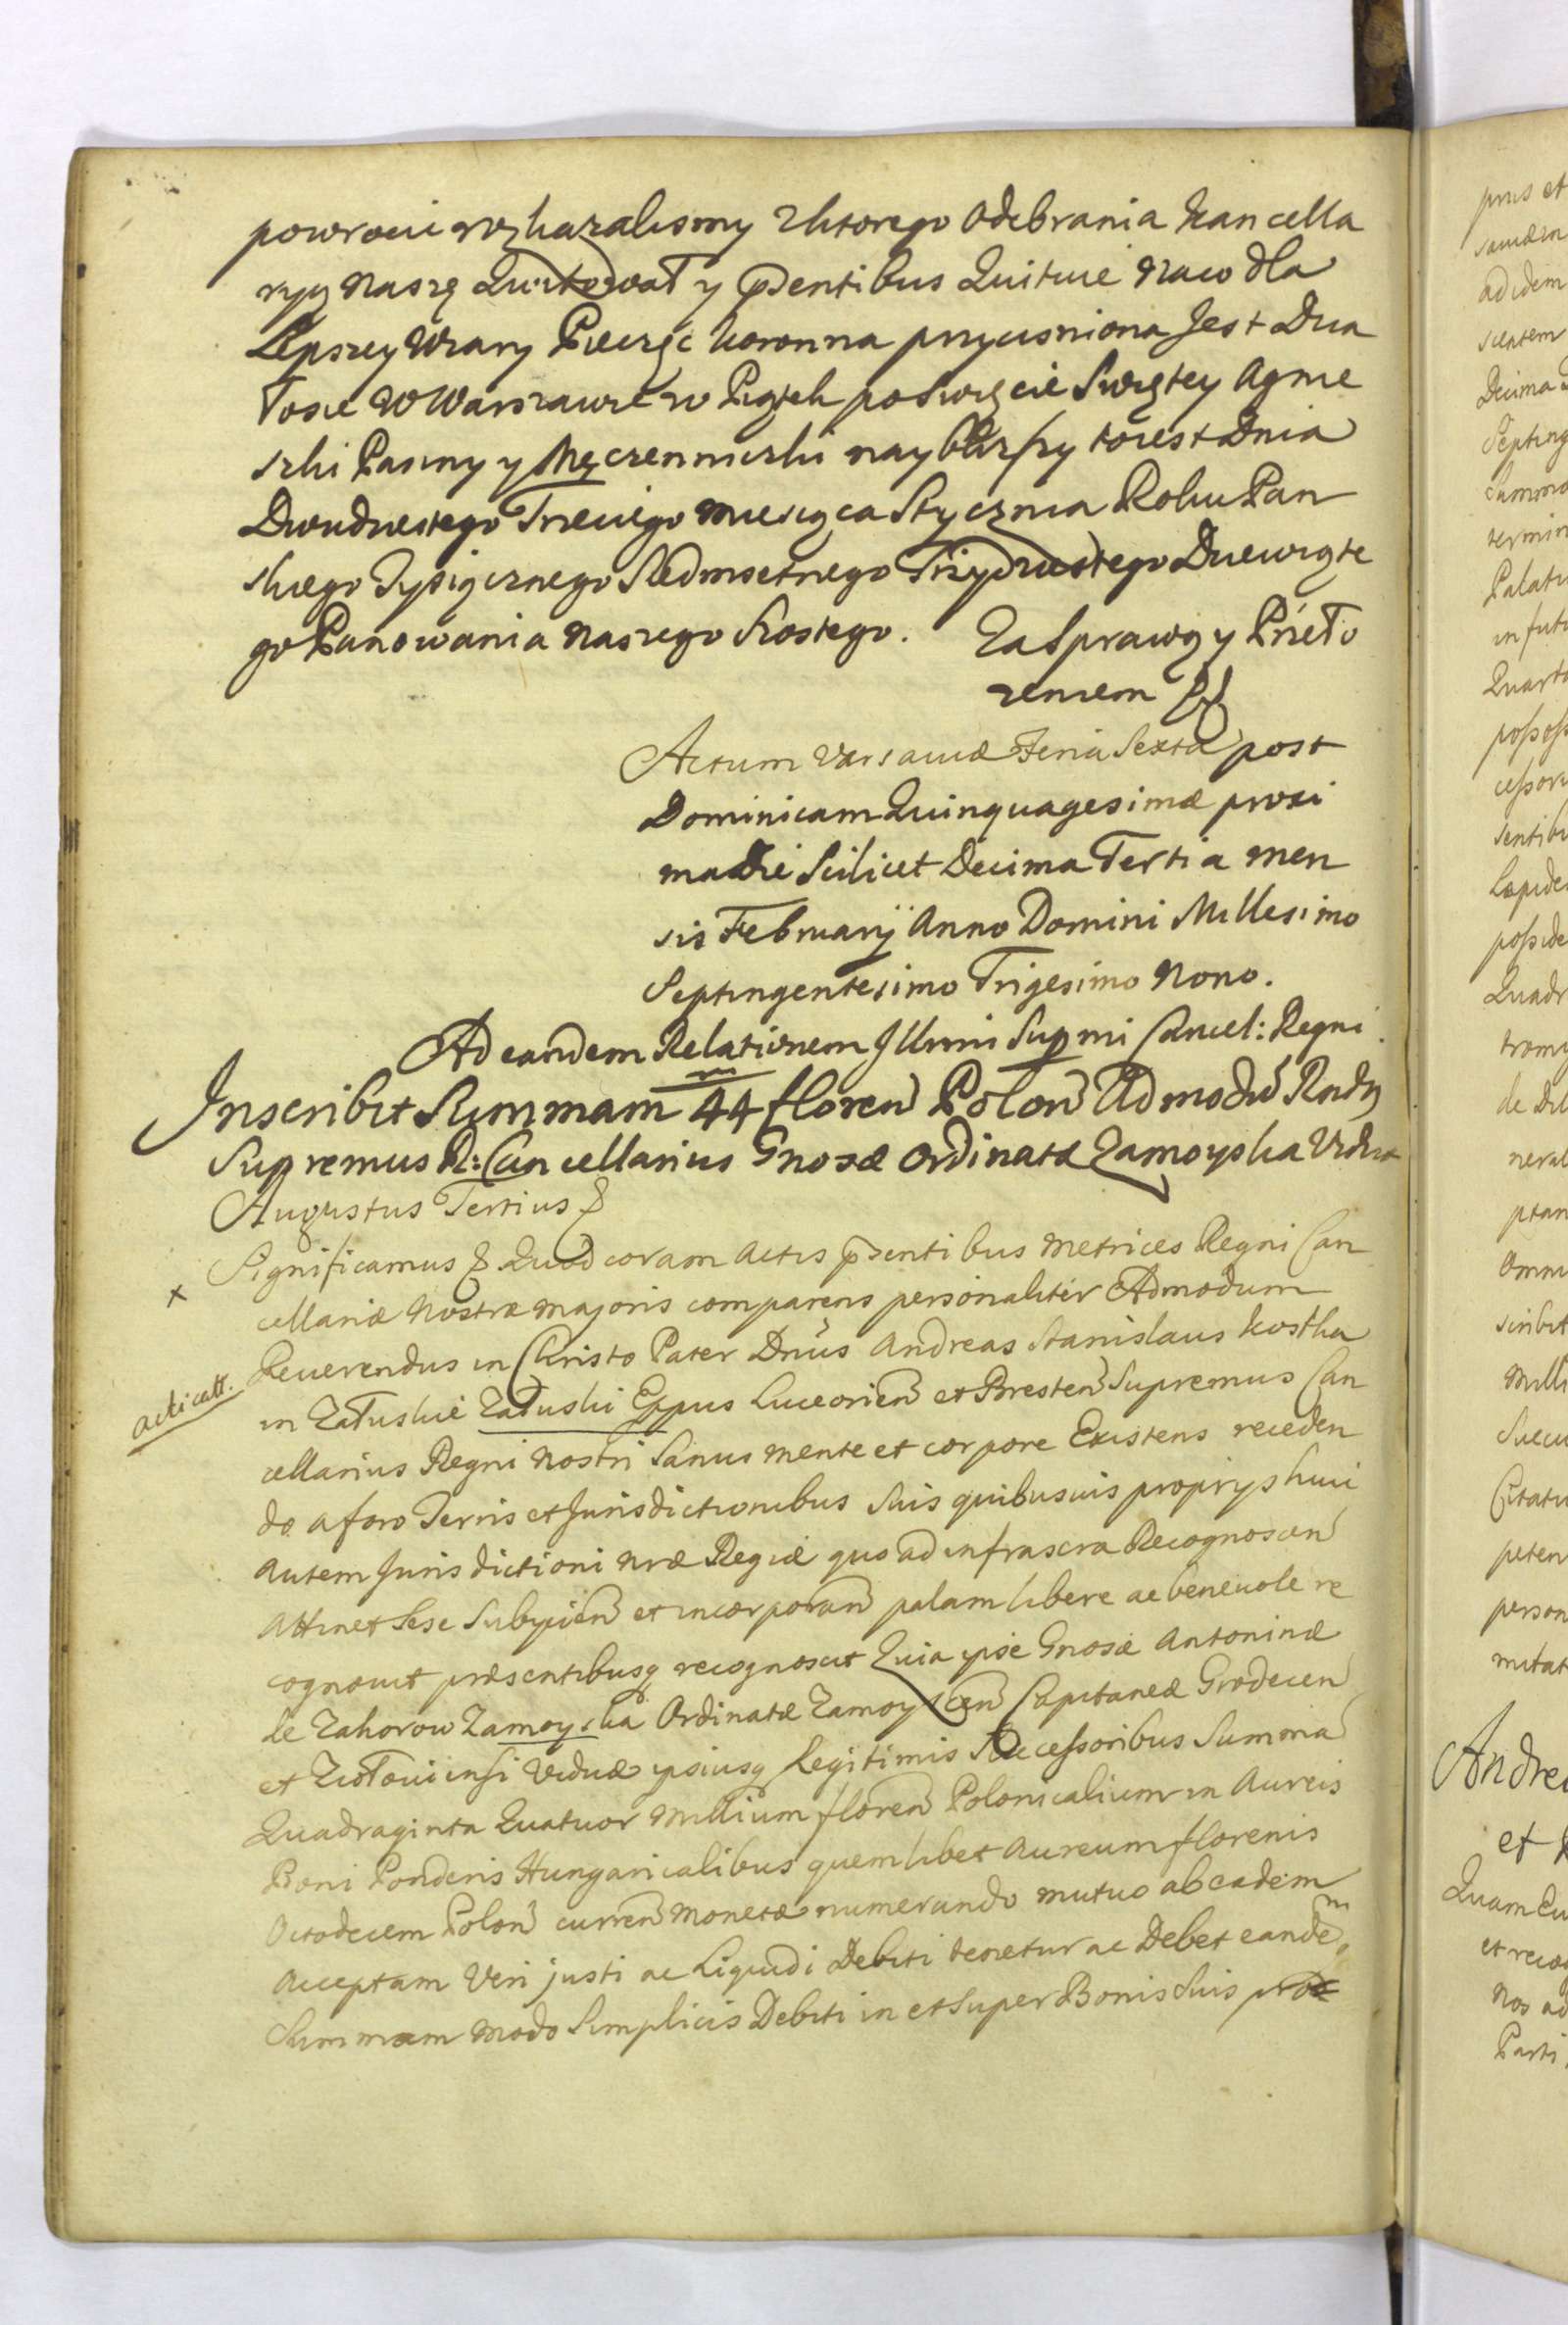 powrocic rozkazalismy z ktorego Odebrania Kancella
ryą naszę Quitował y pſentibus Quituie Naco dla
Lepszey Wiary Pieczęc koronna przycisniona Jest Dzia
łosie W Warszawie w Piątek poswięcie Swiętey Agnie
szki Panny y Męczenniczki naybliższy to iest Dnia
Dwudziestego Trzeciego Miesiąca Stycznia Roku Pan
skiego Tysiącznego Siedmsetnego Trzydziestego Dziewiąte
go Panowania Naszego Szostego. Za Sprawą y Przeło
zeniem
Actum Varsaviæ Feria Sexta post
Dominicam Quinquagesimæ proxi
ma die Scilicet Decima Tertia Men
sis Februarÿ Anno Domini Millesimo
Septingentesimo Trigesimo Nono.
Ad eandem Relationem Illmi Supmi Cancel: Regni
Inscribit Summam 44 m floren Polon Admodu Rndg
Supremus R: Cancellarius Gnosæ Ordinatæ Zamoyska Vidua
Augustus Tertius &
Significamus & Quod coram Actis pſentibus Metrices Regni Can
cellariæ Nostræ Majoris comparens personaliter Admodum
Reuerendus in Christo Pater Dnus Andreas Stanislaus Kostka
in Załuskie Załuski Eppus Luceorien et Bresten Supremus Can
cellarius Regni Nostri Sanus Mente et corpore Existens receden
do a foro Terris et Jurisdictionibus Suis quibusuis proprys huic
autem Jurisdictioni Nræ Regiæ quo ad infrascra Recognoscen
Attinet Sese Subyicien et incorporan palam libere ac beneuole re
cognouit præsentibusq recognoscit Quia ipse Gnosæ Antoninæ
de Zahorow Zamoyska Ordinatæ Zamoyscen Capitaneæ Grodecen
et Złotouiensi Viduæ ipsiusq Legitimis Successoribus Summa
Quadraginta Quatuor Millium floren Polonicalium in Aureis
Boni Ponderis Hungaricalibus quemlibet Aureum florenis
Octodecem Polon curren Monetæ numerando mutuo ab eadem
Acceptam Veri justi ac Liquidi Debiti tenetur ac Debet eandem
Summam modo Simplicis Debiti in et Super Bonis Suis
x
acticatt.
prus et
ad idem
Decima
Septing
Summa
termin
Palati
in futu
Quarta
sentibu
posside
Quadr
ptam
Omni
Milli
peten
person
mitat
Andre
et
Quam
Nos ad
Parti